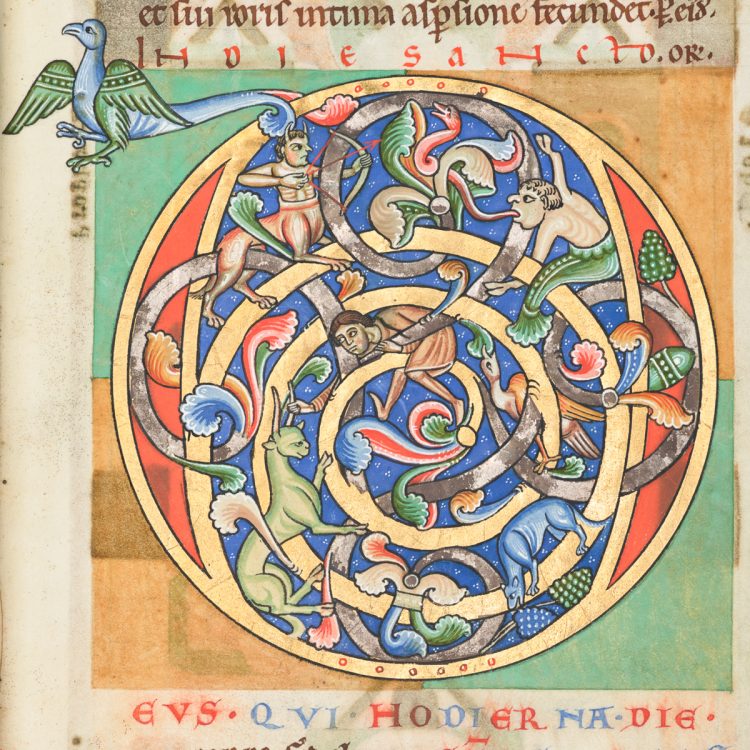 et sui roris intima aspsione fecundet. Per.
IN DIE SANCTO. OR.
D
EVS · QVI · HODIERNA · DIE ·